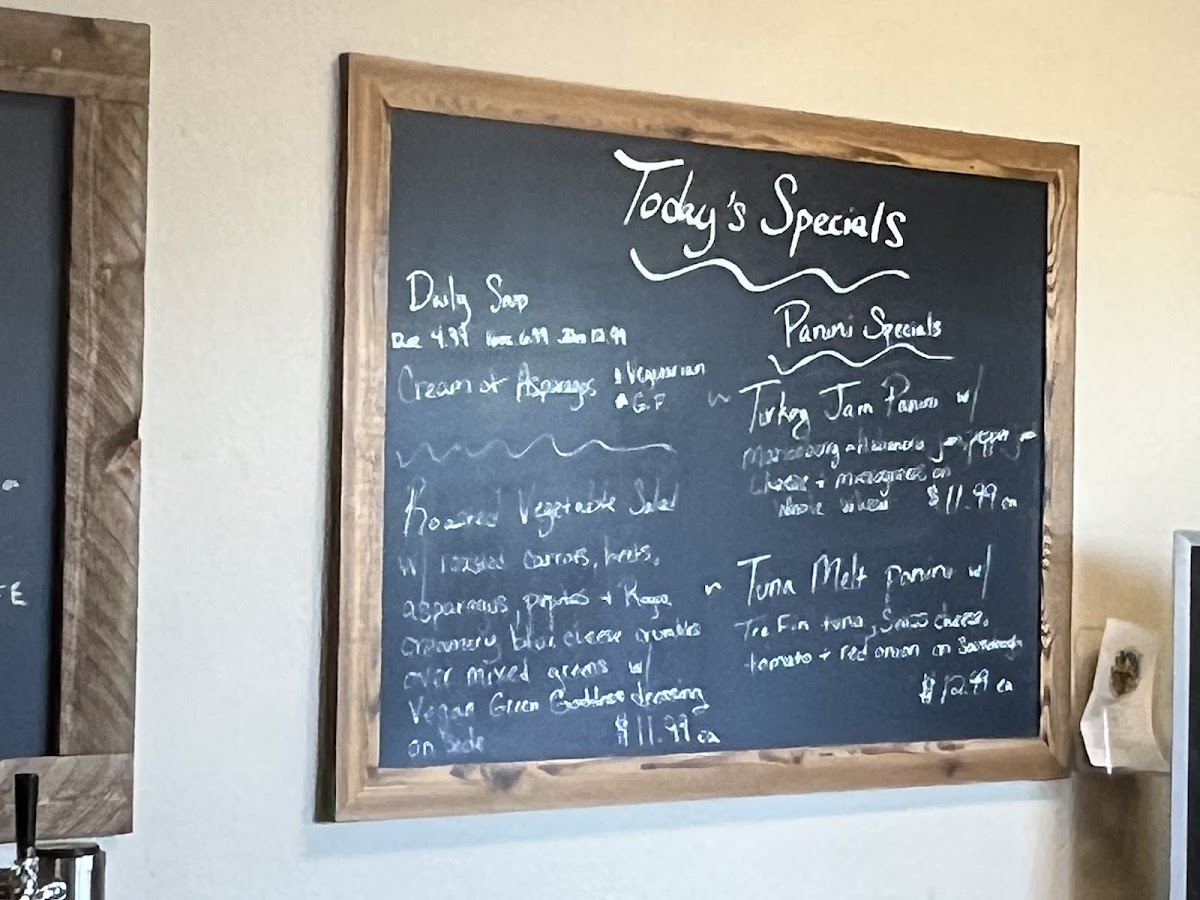 Today's Specials
Daily Soup
4.99 6.99 12.99
Cream of Asparagus
Vegetarian
G.F
Roasted Vegetable Salad
w/ roasted carrots, beets,
asparagus, + Rogue
creamery blue cheese crumbles
over mixed greens w/
Vegan Green Goddess dressing
on side
$11.99 ea
Panini Specials
~ Turkey Jam Panini w/
jam, pepper jack
cheese + microgreens on
whole wheat $11.99 ea
~ Tuna Melt panini w/
Tre Fin tuna, Swiss cheese,
tomato + red onion on Sourdough
$12.99 ea
TE